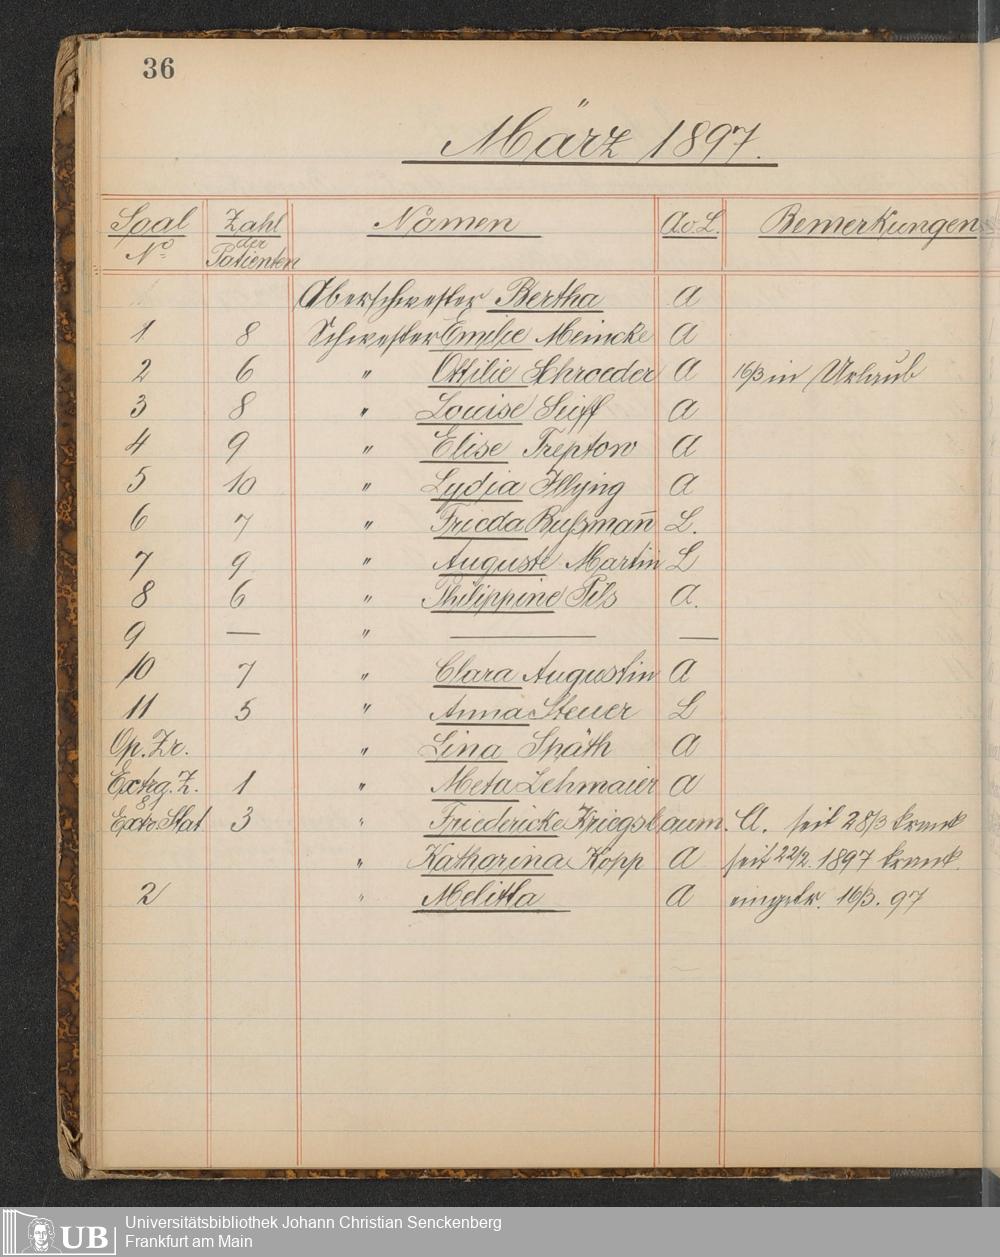 36
März 1897.
Saal Zahl Namen A.v.L. Bemerkungen
No der
Patienten
Oberschwester Bertha A
1 8 Schwester Emilie Meincke A
2 6 " Ottilie Schroeder A 16/3 in Urlaub
3 8 " Louise A
4 9 " Elise Treptow A
5 10 " Lydia Illying A
6 7 " Frieda Bußmann L.
7 9 " Auguste Martin L
8 6 " Philippine Pils A.
9 — " — —
10 7 " Clara Augustin A
11 5 " Anna Steuer L
Op. Zr. " Lina Späth A
Extrg. Z. 1 " Meta Lehmaier A
Extr. Stat 3 " Friedericke Kriegsbaum. A. seit 28/3 krank
" Katharina Kopp A seit 22/2. 1897 krank.
2 " Melitta A eingetr. 16/3. 97
UB Universitätsbibliothek Johann Christian Senckenberg
Frankfurt am Main